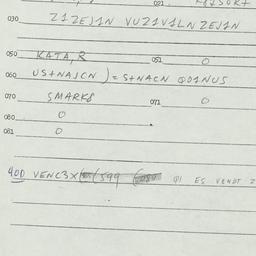 091
030 Z1ZEJ1N VUZ1V1LN ZEJ1N
050 KATA,R 051 O
060 US+NAJCN ) = S+NACN QO1NUS
070 SMARK8 071 O
080 O
081 O
400 VENC3X (599 Q1 ES VENDT